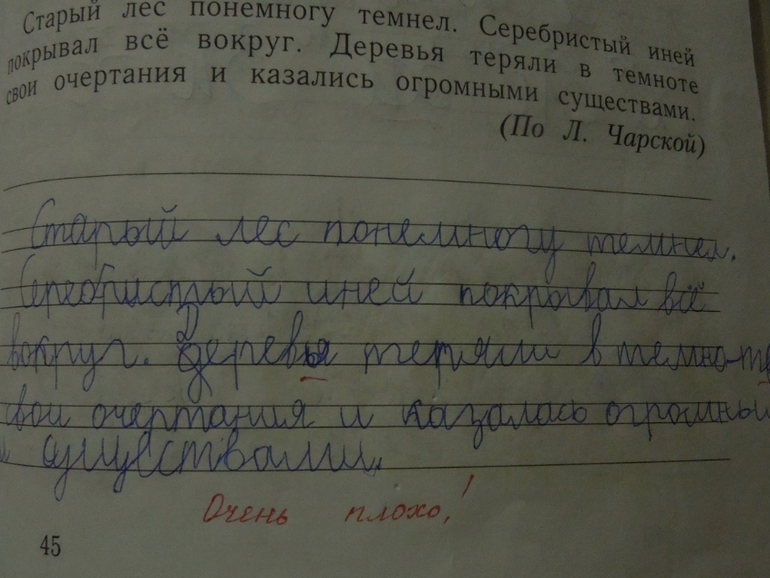 Старый лес понемногу темнел. Серебристый иней
покрывал всё вокруг. Деревья теряли в темноте
свои очертания и казались огромными существами.
(По Л. Чарской)
Старый лес понемногу темнел.
Серебристый иней покрывал всё
вокруг. Деревья теряли в темно-те
свои очертания и казалась огромны
и существами.
Очень плохо!
45